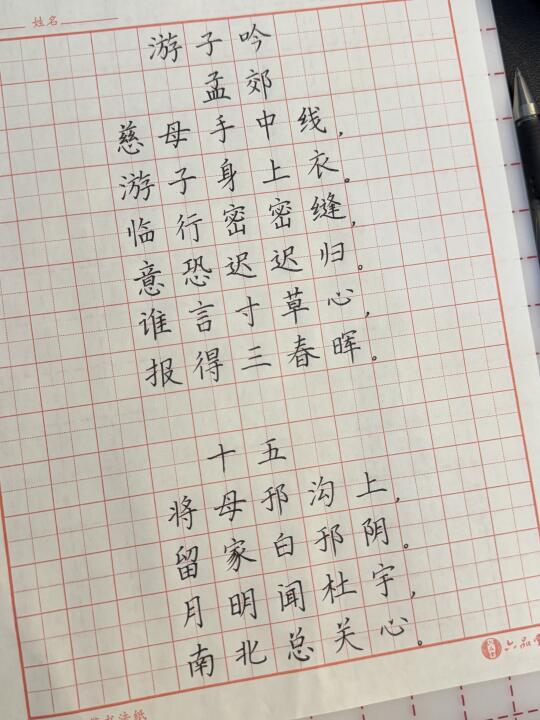 姓名
游子吟
孟郊
慈母手中线，
游子身上衣。
临行密密缝，
意恐迟迟归。
谁言寸草心，
报得三春晖。
十五
将母邗沟上，
留家白邗阴。
月明闻杜宇，
南北总关心。
六品堂
书法纸